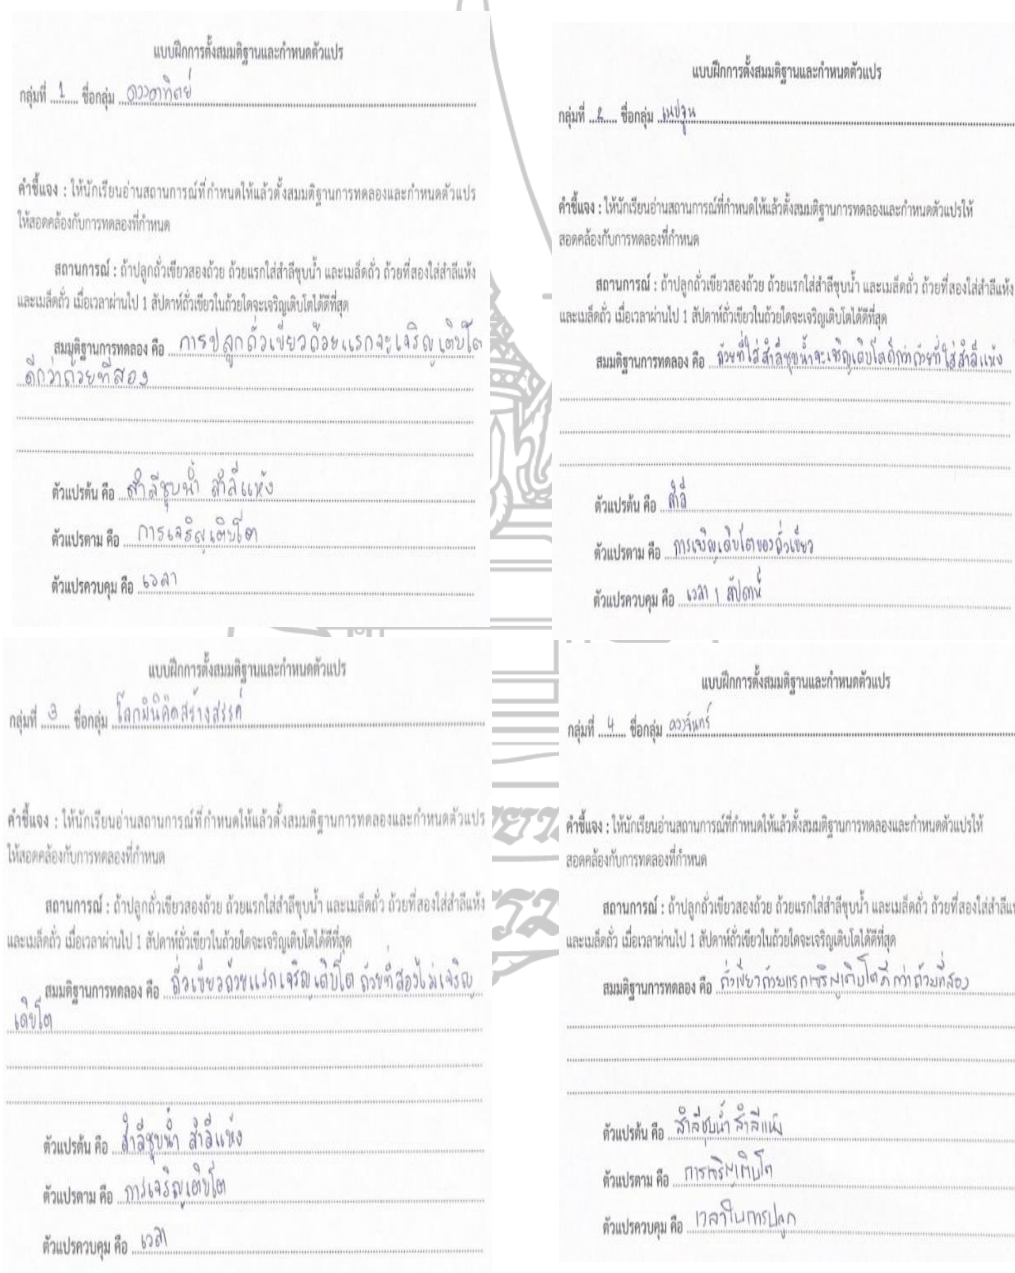 แบบฝึกการตั้งสมมติฐานและกำหนดตัวแปร
กลุ่มที่ 1 ชื่อกลุ่ม ดวงอาทิตย์
คำชี้แจง : ให้นักเรียนอ่านสถานการณ์ที่กำหนดให้แล้วตั้งสมมติฐานการทดลองและกำหนดตัวแปร
ให้สอดคล้องกับการทดลองที่กำหนด
สถานการณ์ : ถ้าปลูกถั่วเขียวสองถ้วย ถ้วยแรกใส่สำลีชุบน้ำ และเมล็ดถั่ว ถ้วยที่สองใส่สำลีแห้ง
และเมล็ดถั่ว เมื่อเวลาผ่านไป 1 สัปดาห์ถั่วเขียวในถ้วยใดจะเจริญเติบโตได้ดีที่สุด
สมมุติฐานการทดลอง คือ การปลูกถั่วเขียวถ้วยแรกจะเจริญเติบโต
ดีกว่าถ้วยที่สอง
ตัวแปรต้น คือ สำลีชุบน้ำ สำลีแห้ง
ตัวแปรตาม คือ การเจริญเติบโต
ตัวแปรควบคุม คือ เวลา
แบบฝึกการตั้งสมมติฐานและกำหนดตัวแปร
กลุ่มที่ 2 ชื่อกลุ่ม เนปจูน
คำชี้แจง : ให้นักเรียนอ่านสถานการณ์ที่กำหนดให้แล้วตั้งสมมติฐานการทดลองและกำหนดตัวแปรให้
สอดคล้องกับการทดลองที่กำหนด
สถานการณ์ : ถ้าปลูกถั่วเขียวสองถ้วย ถ้วยแรกใส่สำลีชุบน้ำ และเมล็ดถั่ว ถ้วยที่สองใส่สำลีแห้ง
และเมล็ดถั่ว เมื่อเวลาผ่านไป 1 สัปดาห์ถั่วเขียวในถ้วยใดจะเจริญเติบโตได้ดีที่สุด
สมมติฐานการทดลอง คือ ถ้วยที่ใส่สำลีชุบน้ำจะเจริญเติบโตดีกว่าถ้วยที่ใส่สำลีแห้ง
ตัวแปรต้น คือ สำลี
ตัวแปรตาม คือ การเจริญเติบโตของถั่วเขียว
ตัวแปรควบคุม คือ เวลา 1 สัปดาห์
แบบฝึกการตั้งสมมติฐานและกำหนดตัวแปร
กลุ่มที่ 3 ชื่อกลุ่ม โลกมินิคิดสร้างสรรค์
คำชี้แจง : ให้นักเรียนอ่านสถานการณ์ที่กำหนดให้แล้วตั้งสมมติฐานการทดลองและกำหนดตัวแปร
ให้สอดคล้องกับการทดลองที่กำหนด
สถานการณ์ : ถ้าปลูกถั่วเขียวสองถ้วย ถ้วยแรกใส่สำลีชุบน้ำ และเมล็ดถั่ว ถ้วยที่สองใส่สำลีแห้ง
และเมล็ดถั่ว เมื่อเวลาผ่านไป 1 สัปดาห์ถั่วเขียวในถ้วยใดจะเจริญเติบโตได้ดีที่สุด
สมมุติฐานการทดลอง คือ ถั่วเขียวถ้วยแรกเจริญเติบโต ถ้วยที่สองไม่เจริญ
เติบโต
ตัวแปรต้น คือ สำลีชุบน้ำ สำลีแห้ง
ตัวแปรตาม คือ การเจริญเติบโต
ตัวแปรควบคุม คือ เวลา
แบบฝึกการตั้งสมมติฐานและกำหนดตัวแปร
กลุ่มที่ 4 ชื่อกลุ่ม ดวงจันทร์
คำชี้แจง : ให้นักเรียนอ่านสถานการณ์ที่กำหนดให้แล้วตั้งสมมติฐานการทดลองและกำหนดตัวแปรให้
สอดคล้องกับการทดลองที่กำหนด
สถานการณ์ : ถ้าปลูกถั่วเขียวสองถ้วย ถ้วยแรกใส่สำลีชุบน้ำ และเมล็ดถั่ว ถ้วยที่สองใส่สำลีแ
และเมล็ดถั่ว เมื่อเวลาผ่านไป 1 สัปดาห์ถั่วเขียวในถ้วยใดจะเจริญเติบโตได้ดีที่สุด
สมมุติฐานการทดลอง คือ ถั่วเขียวถ้วยแรกเจริญเติบโตดีกว่าถ้วยที่สอง
ตัวแปรต้น คือ สำลีชุบน้ำ
ตัวแปรตาม คือ การเจริญเติบโต
ตัวแปรควบคุม คือ เวลาในการปลูก